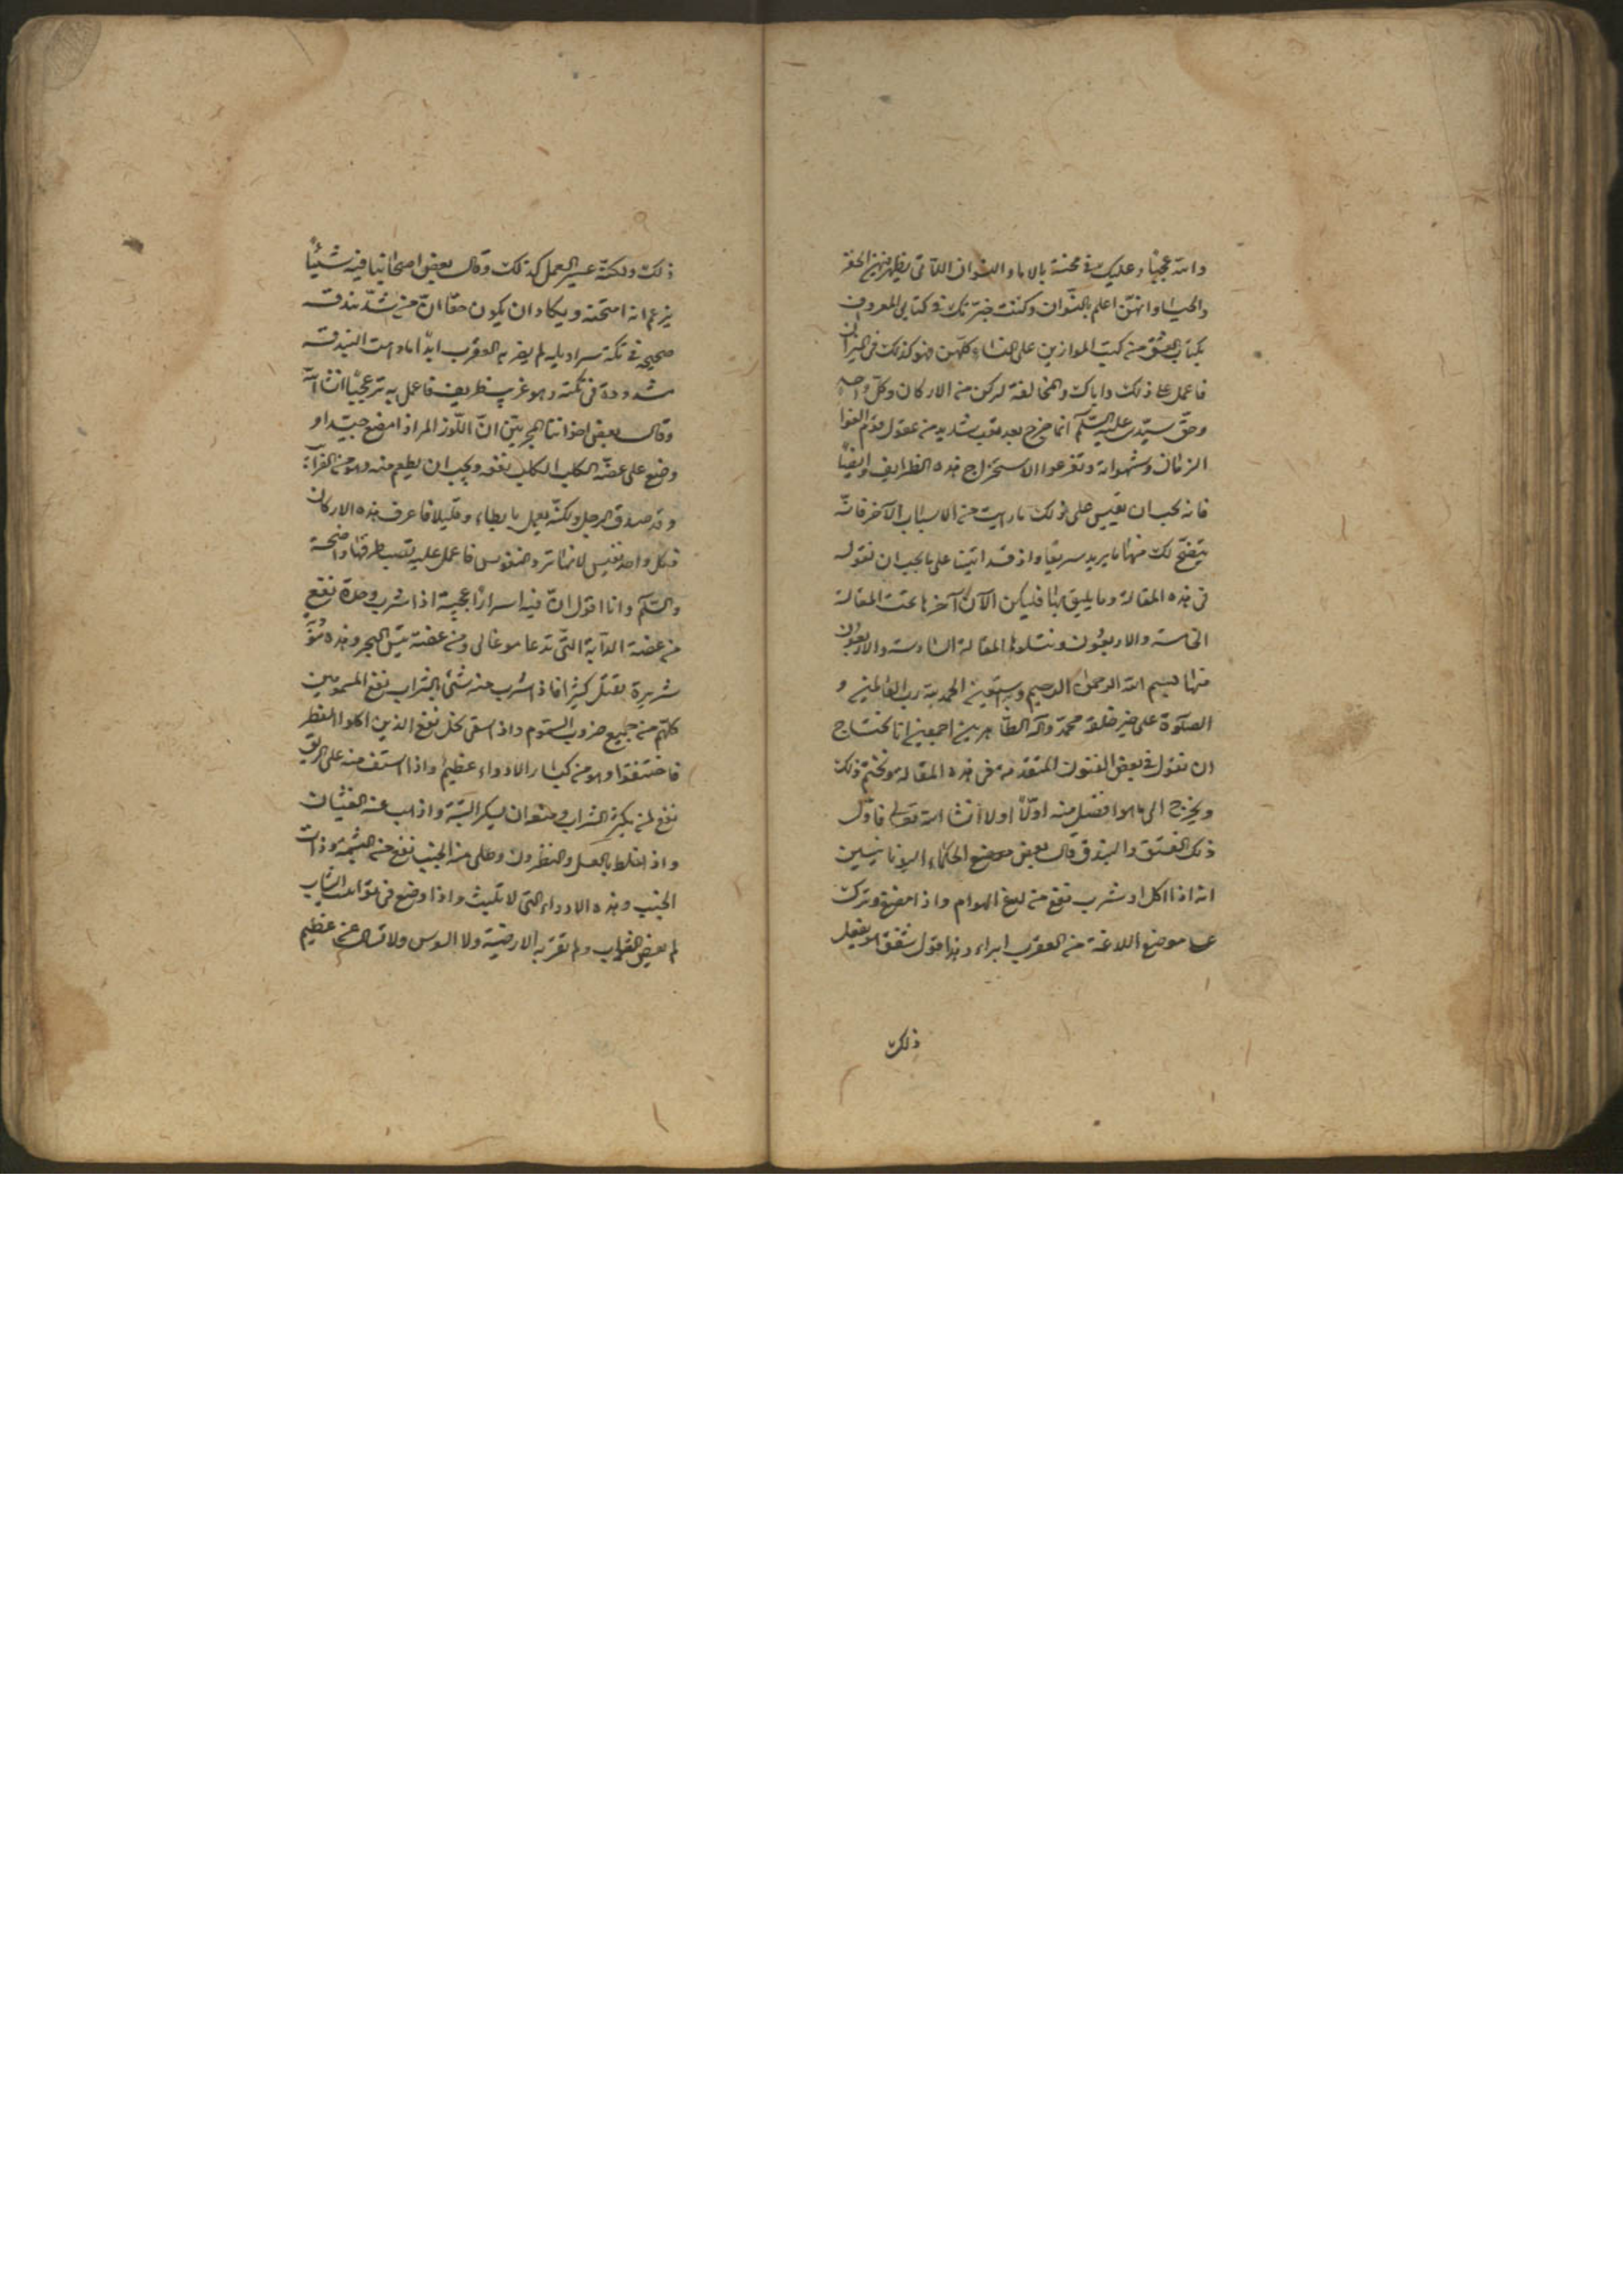 والله عجبا وعليك في محنة بالاماء والنسوان اللاتي يظهرن الخفر
والحياء وانهن اعلم بالنسوان وكنت خبرتك في كتابي المعروف
بكتاب العشق من كتب الموازين على النساء كلهن فهو كذلك في الميزان
فاعمل على ذلك واياك والمخالفة لركن من الاركان وكل واحد
وحق سيدي عليه السلام انما خرج بعد تعب شديد من عقول قوم
الزمان وشهواته وتفرعوا الاستخراج هذه الظرايف وايضا
فانه يجب ان تقيس على ذلك ما رايت من الاسباب الآخر فانه
يتضح لك منها ما يريد سريعا واذ قد اتينا على ما يجب ان نقوله
في هذه المقالة وما يليق بها فليكن الآن آخرها تمت المقالة
الخامسة والاربعون ونتلوها المقالة السادسة والاربعون
منها بسم الله الرحمن الرحيم وبه نستعين الحمد لله رب العالمين و
الصلوة على خير خلقه محمد وآله الطاهرين اجمعين انا نحتاج
ان نقول في بعض الفنون المتقدمة في هذه المقالة ونختم ذلك
ويخرج الى ما هو افضل منه اولا اولا انشا الله تعالى فاول
ذلك الفستق والبندق قال بعض موضع الحكماء اليونانيين
انه اذا اكل او شرب نفع من لدغ الهوام واذا مضغ وترك
على موضع اللدغة من العقرب ابراء وهذا قول شفق هو يفعل
ذلك
ذلك ولكنه عسير العمل كذلك وقال بعض اصحابنا فيه شيئا
يزعم انه امتحنه ويكاد ان يكون حقا ان من شد بندقة
صحيحة في تكة سراويله لم يضر به العقرب ابدا ما دامت البندقة
مشدودة في تكته وهو غريب ظريف فاعمل به تر عجبا انشا الله
وقال بعض اخواننا المجربين ان اللوز المر اذا مضغ جيدا و
وضع على عضة الكلب الكلب نفعه ويجب ان يطعم منه وهو من
وقد صدق الرجل ولكنه يعمل بابطاء وقليلا فاعرف هذه الاركان
فكل واحد نفيس لانها ترد النفوس فاعمل عليه تصب طرقها واضحة
والسلام وانا اقول ان فيه اسرارا عجيبة اذا شرب وحده نفع
من عضة الدابة التي تدعا موغالي ومن عضة تنين البحر وهذه
شريرة يقتل كثيرا فاذا شرب منه شئ بالشراب نفع المسمومين
كلهم من جميع ضروب السموم واذا سقى بخل نفع الذين اكلوا الفطر
فاختنقوا وهو من كبار الادواء عظيم واذا استف منه على الريق
نفع لمن يكثر الشراب ومنع ان يسكر البتة واذهب عنه الغشيان
واذا خلط بالعسل والنطرون وطلى منه الجنب نفع من الشمة وذات
الجنب وهذه الادواء التي لا تلبث واذا وضع في الثياب
لم يعض ولم تقربه الارضية ولا السوس ولا عظيم